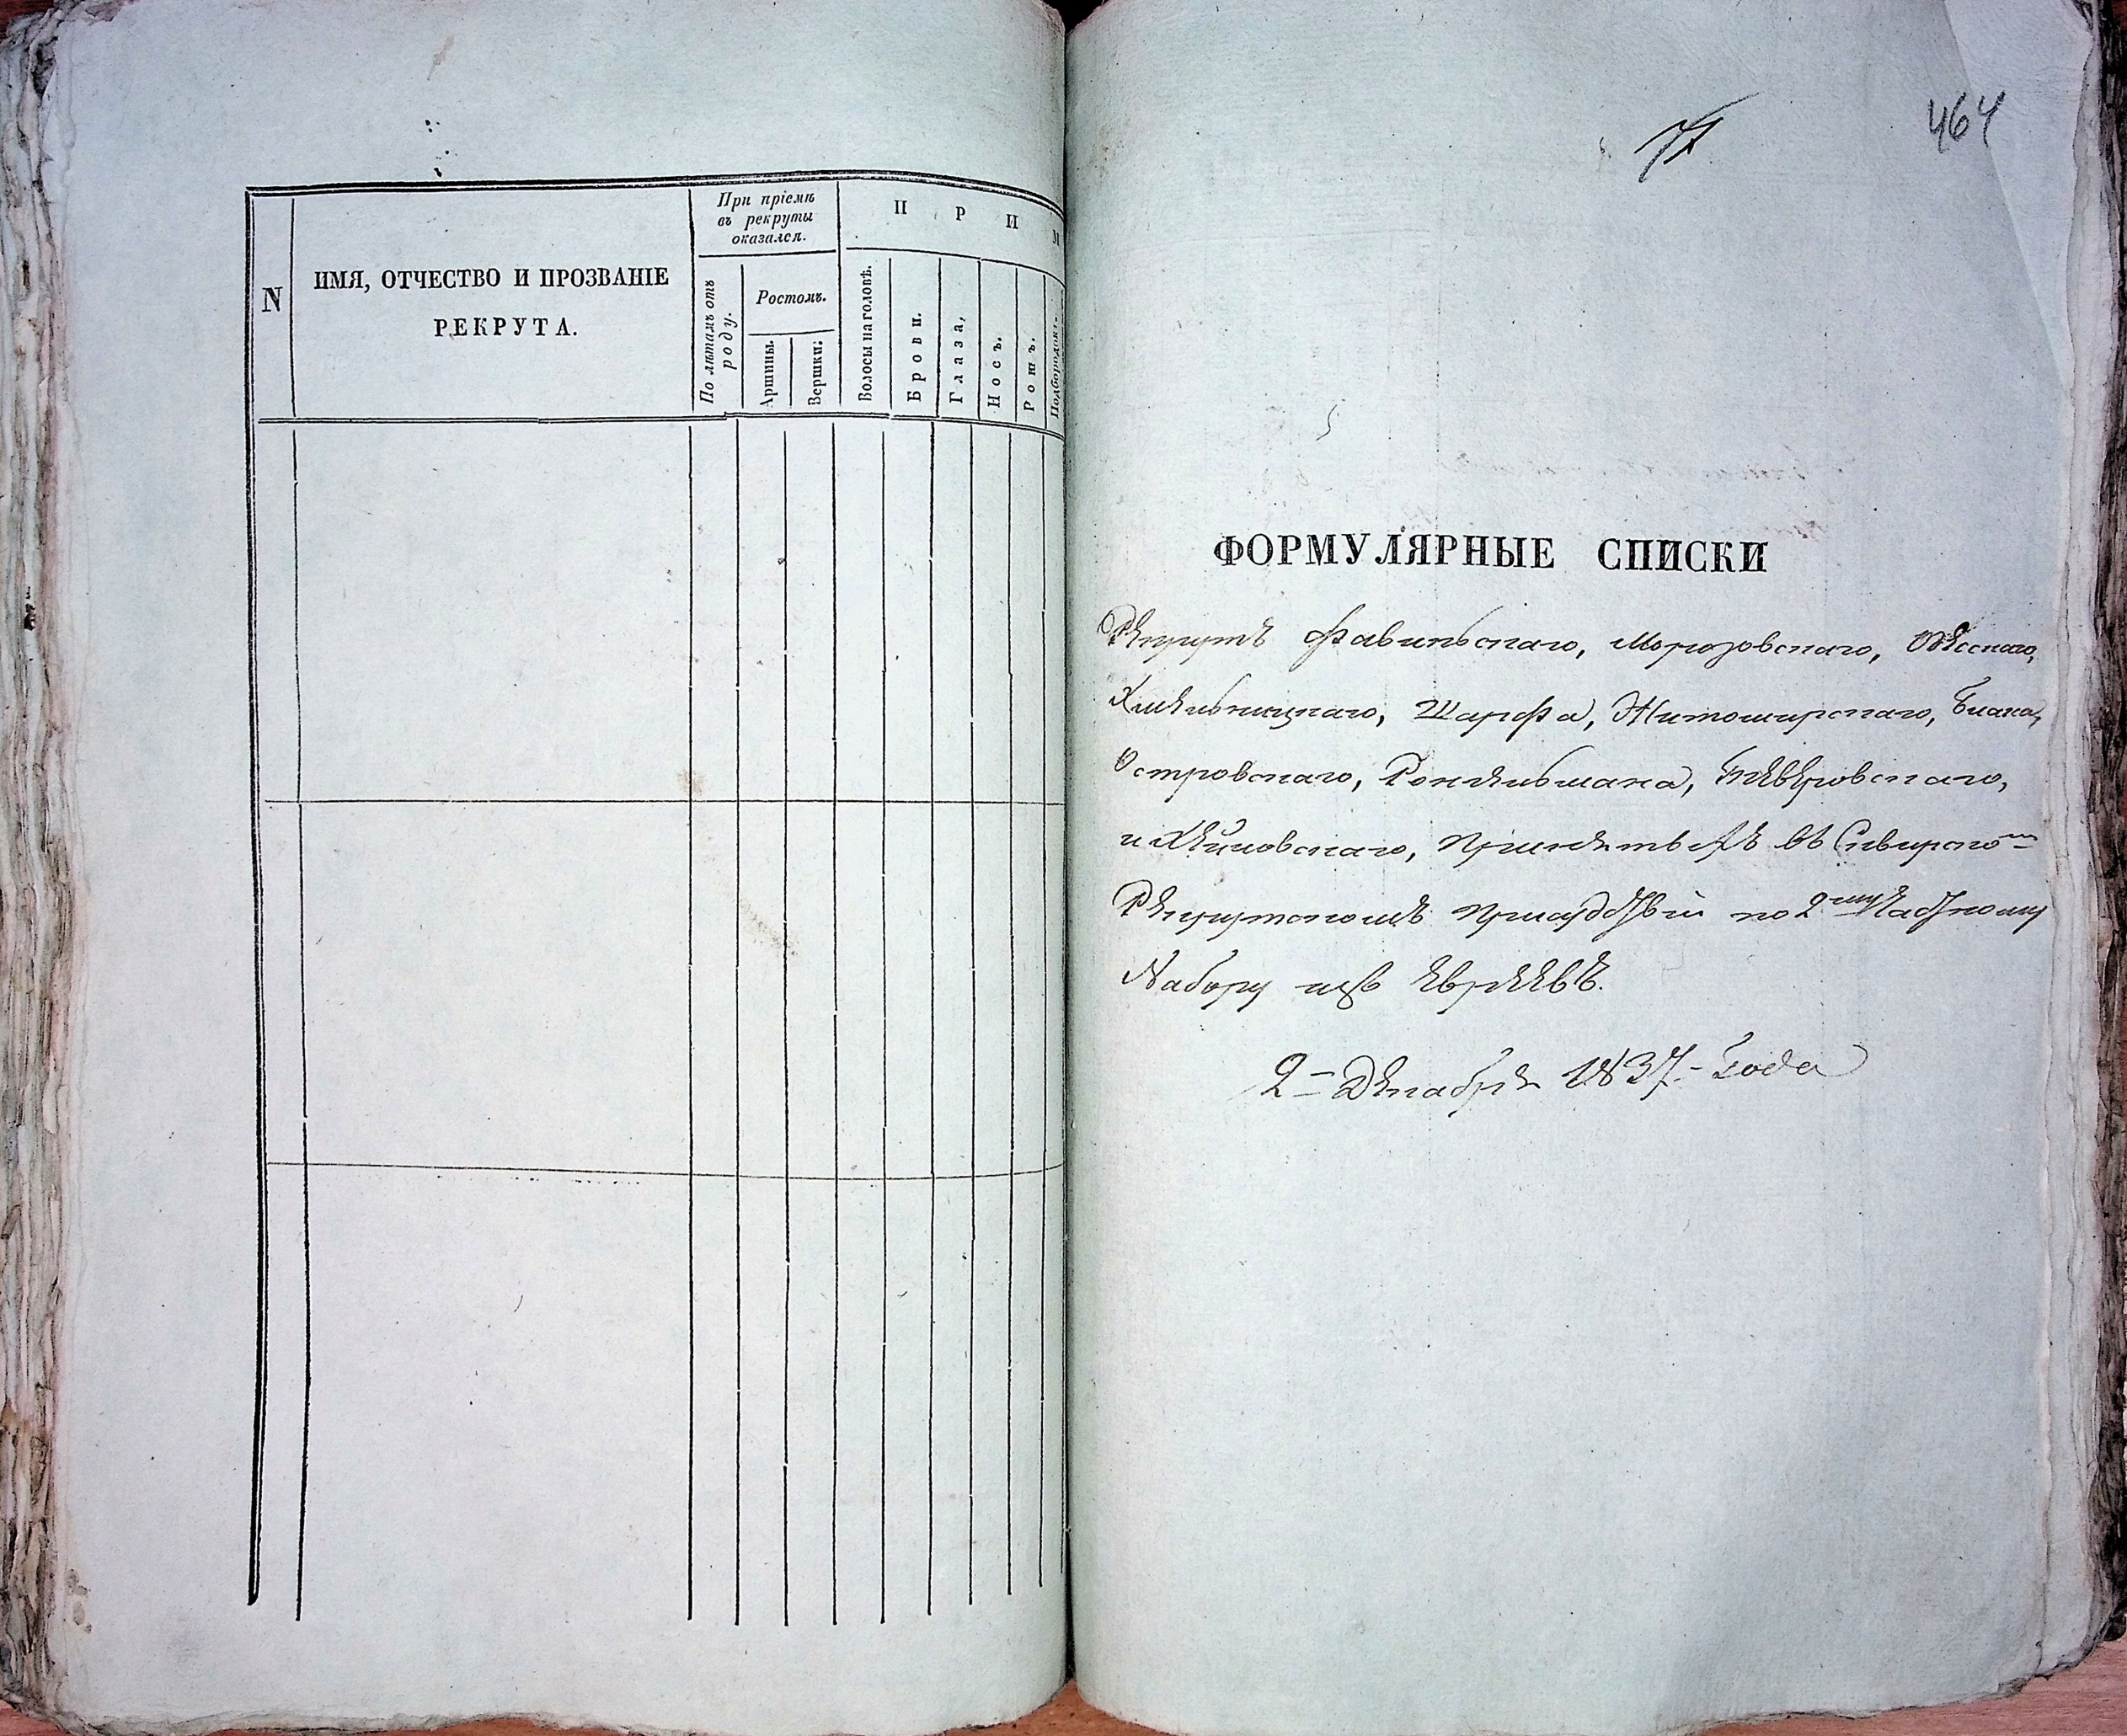 N
ИМЯ, ОТЧЕСТВО И ПРОЗВАНІЕ
РЕКРУТА.
При пріемѣ
въ рекруты
оказался.
По лѣтамъ отъ
роду.
Ростомъ.
Аршины.
Вершки:
П Р И М
Волосы на головѣ.
Брови.
Глаза,
Носъ.
Ротъ.
Подбородокъ
464
ФОРМУЛЯРНЫЕ СПИСКИ
Рекрутъ Фавильскаго, Морозовскаго,
Хмельницкаго, Шарфа, Житомирскаго,
Островскаго,
и
Рекрутскомъ по 2му Частному
Набору изъ Евреевъ.
2 Декабря 1837 Года